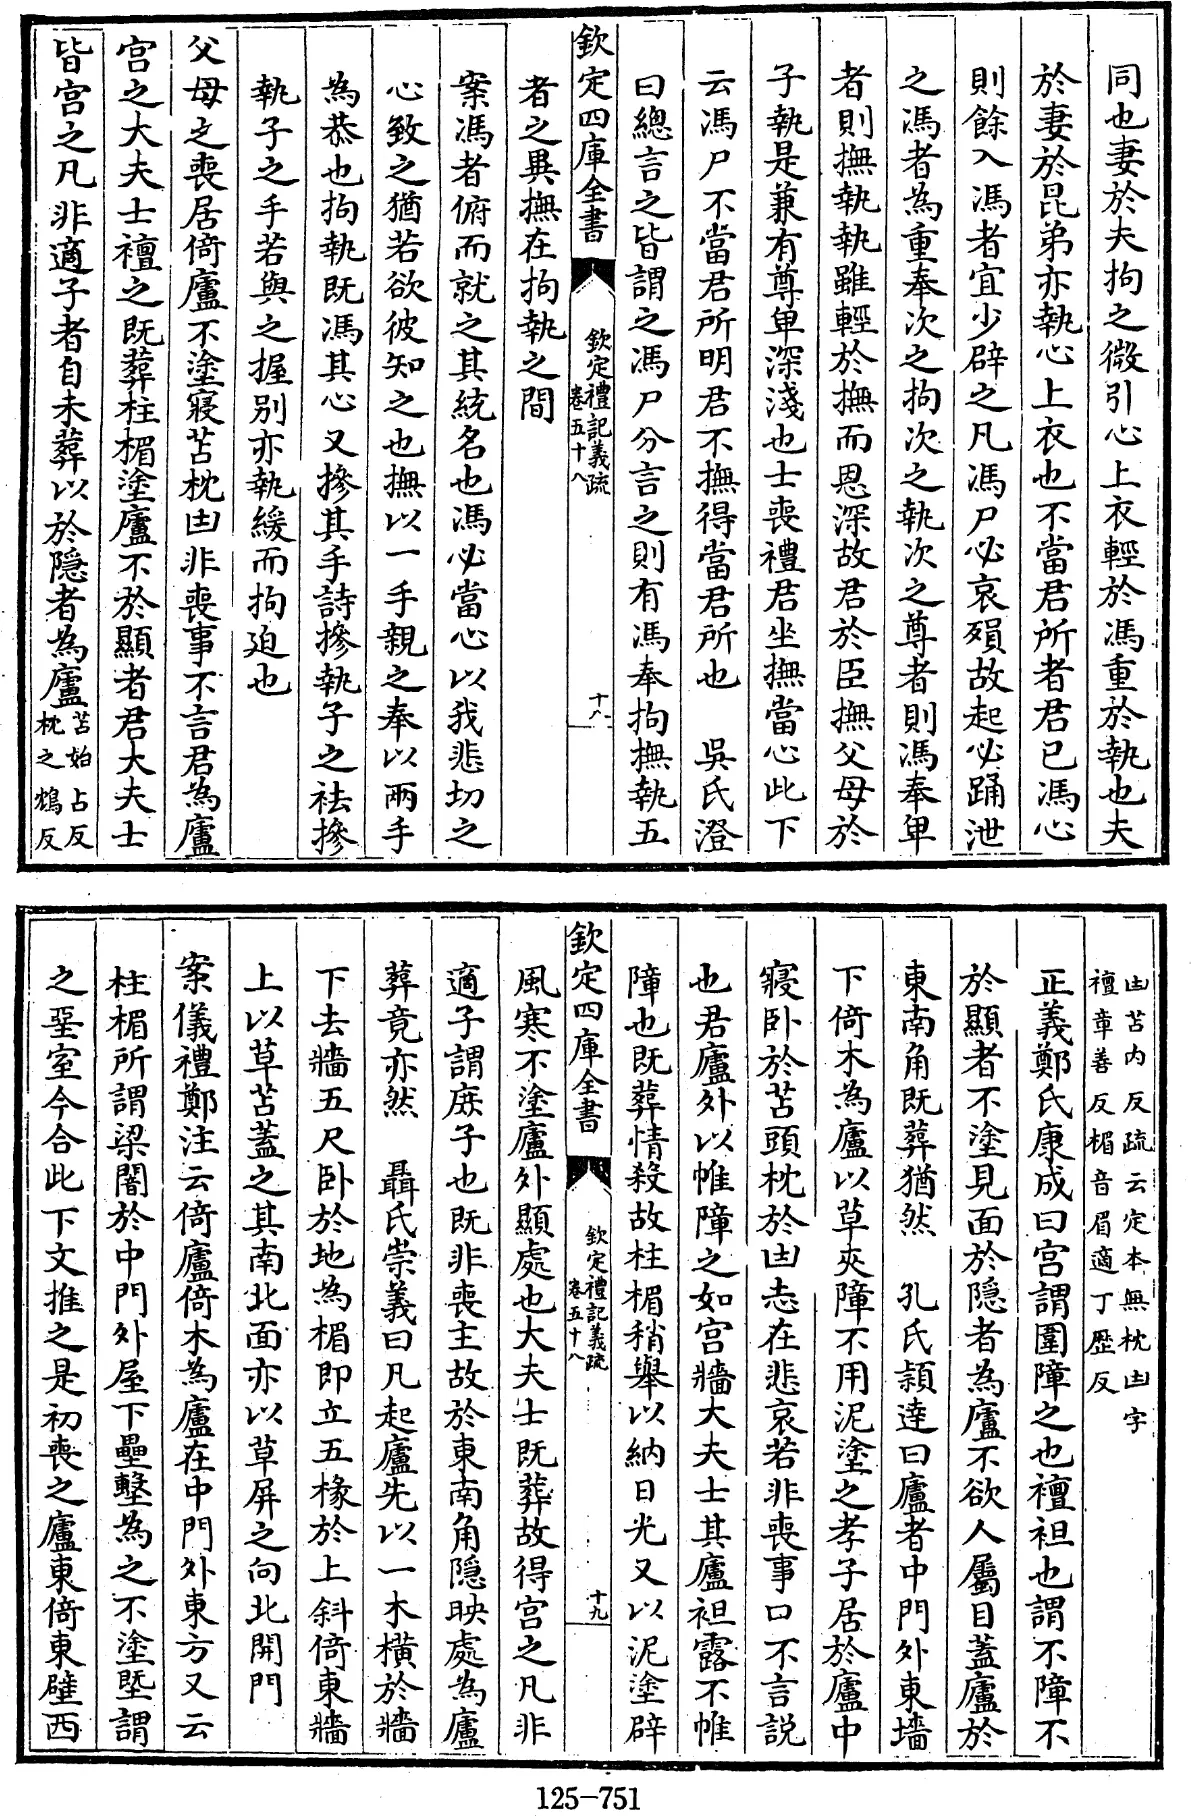 同也妻於夫拘之微引心上衣輕於馮重於執也夫
於妻於昆弟亦執心上衣也不當君所者君已馮心
則餘入馮者宜少辟之凡馮尸必哀殞故起必踊泄
之馮者為重奉次之拘次之執次之尊者則馮奉卑
者則撫執執雖輕於撫而恩深故君於臣撫父母於
子執是兼有尊卑深淺也士喪禮君坐撫當心此下
云馮尸不當君所明君不撫得當君所也　吳氏澄
曰總言之皆謂之馮尸分言之則有馮奉拘撫執五
欽定四庫全書
欽定禮記義疏
卷五十八
十八
者之異撫在拘執之間
案馮者俯而就之其統名也馮必當心以我悲切之
心致之猶若欲彼知之也撫以一手親之奉以兩手
為恭也拘執既馮其心又摻其手詩摻執子之袪摻
執子之手若與之握別亦執緩而拘迫也
父母之喪居倚廬不塗寢苫枕凷非喪事不言君為廬
宮之大夫士襢之既葬柱楣塗廬不於顯者君大夫士
皆宮之凡非適子者自未葬以於隱者為廬苫始占反
枕之鴆反
凷苫內反疏云定本無枕凷字
襢章善反楣音眉適丁歷反
正義鄭氏康成曰宮謂圍障之也襢袒也謂不障不
於顯者不塗見面於隱者為廬不欲人屬目蓋廬於
東南角既葬猶然　孔氏頴逹曰廬者中門外東墻
下倚木為廬以草夾障不用泥塗之孝子居於廬中
寢臥於苫頭枕於凷志在悲哀若非喪事口不言說
也君廬外以帷障之如宮牆大夫士其廬袒露不帷
障也既葬情殺故柱楣稍舉以納日光又以泥塗辟
欽定四庫全書
欽定禮記義疏
卷五十八
十九
風寒不塗廬外顯處也大夫士既葬故得宮之凡非
適子謂庶子也既非喪主故於東南角隱映處為廬
葬竟亦然　聶氏崇義曰凡起廬先以一木橫於牆
下去牆五尺臥於地為楣即立五椽於上斜倚東牆
上以草苫蓋之其南北面亦以草屏之向北開門
案儀禮鄭注云倚廬倚木為廬在中門外東方又云
柱楣所謂梁闇於中門外屋下壘墼為之不塗塈謂
之堊室今合此下文推之是初喪之廬東倚東壁西
125-751